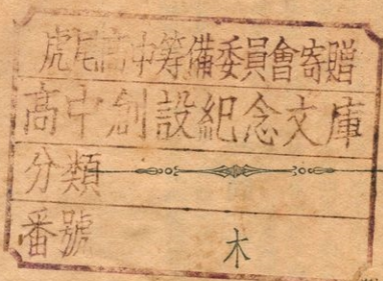 虎尾高中筹備委員會寄贈
高中創設紀念文庫
分類
番號 木